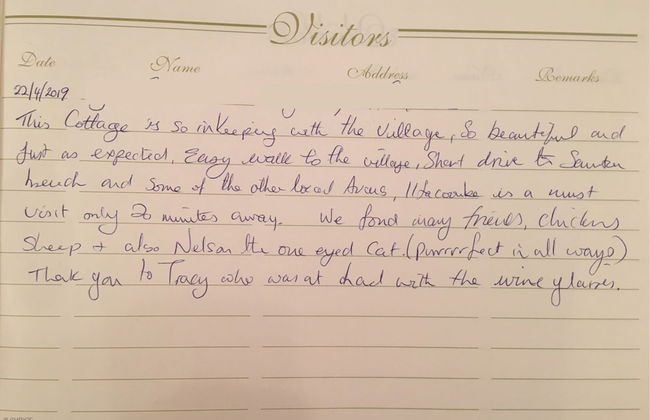 Visitors
Date Name Address Remarks
22/4/2019
This Cottage is so inkeeping with the Village, So beautiful and
Just as expected, Easy walk to the village, Short drive to Saunton
beach and Some of the other local Areas, Ilfracombe is a must
visit only 20 minutes away. We fond many friends, chickens
Sheep + also Nelson the one eyed Cat. (purrrrfect in all ways)
Thank you to Tracy who was at hand with the wine glasses.